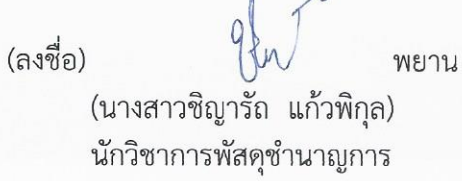 (ลงชื่อ) พยาน
(นางสาวชิญารัถ แก้วพิกุล)
นักวิชาการพัสดุชำนาญการ